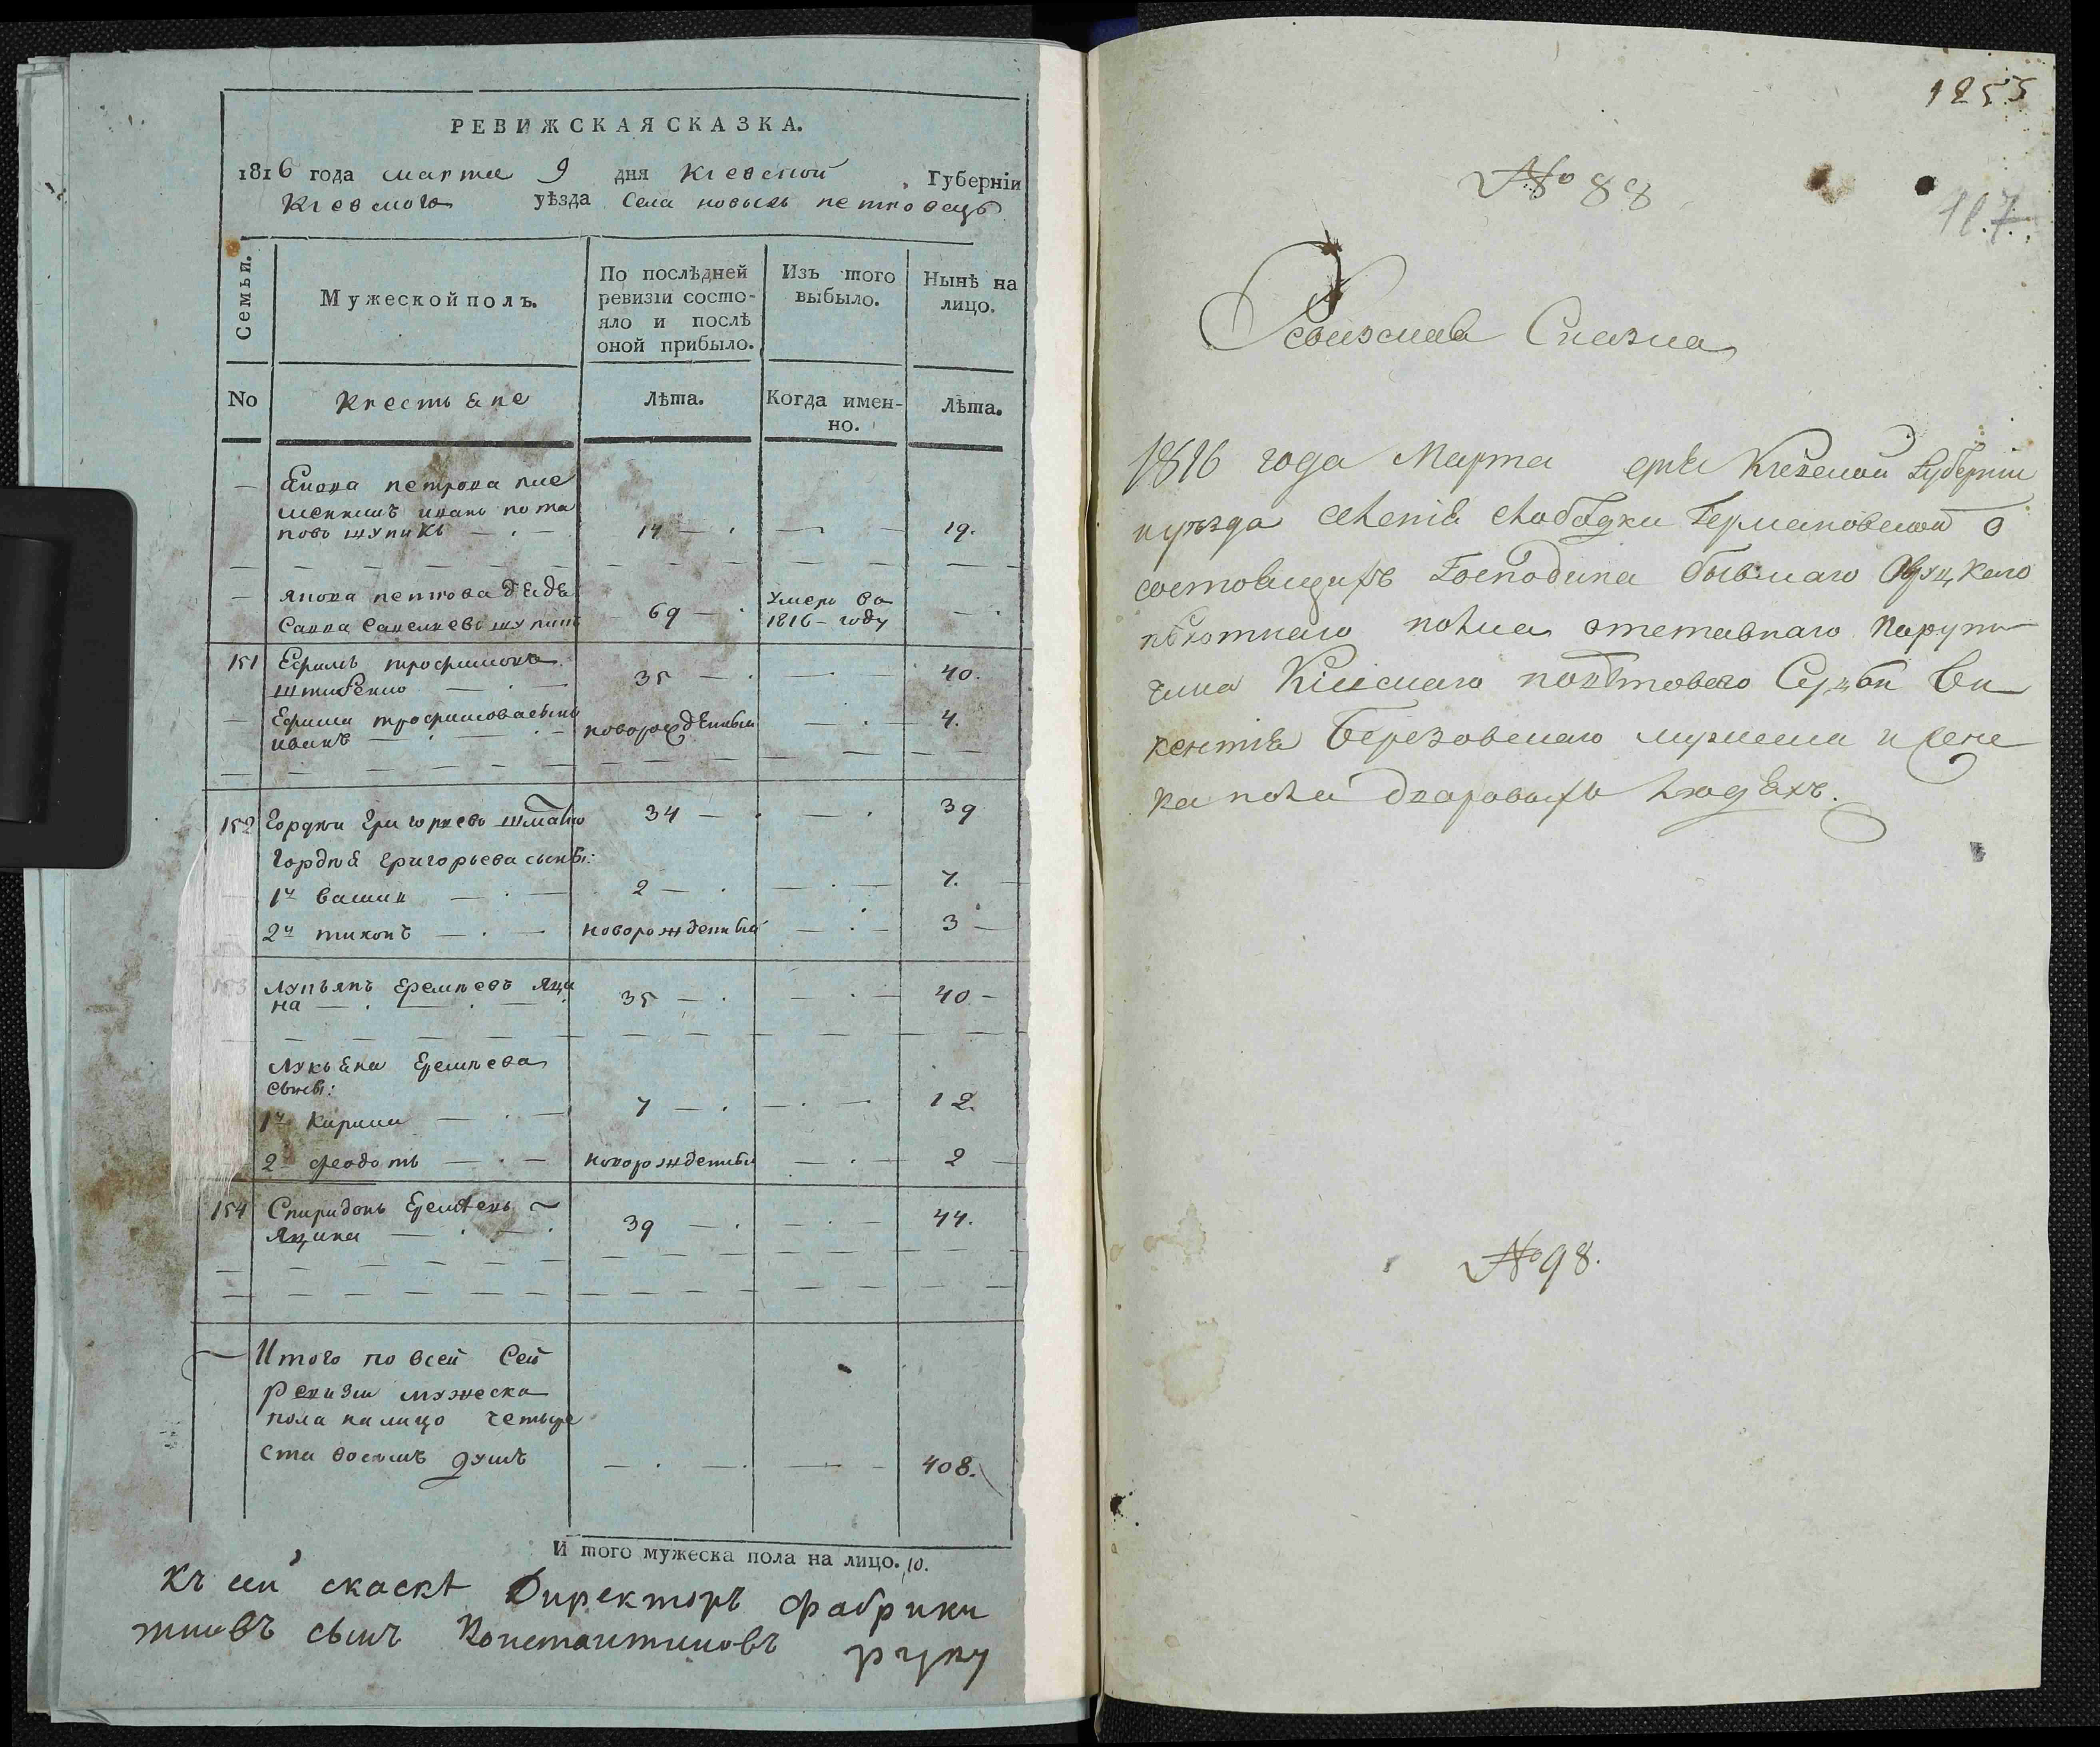 РЕВИЖСКАЯ СКАЗКА.
1816 года марта 9 дня Киевской Губерніи
Киевского уѣзда Села новыхъ петровецъ
Семьи.
Мужеской полъ.
По послѣдней ревизіи состояло и послѣ оной прибыло.
Изъ того выбыло.
Нынѣ на лицо.
No
Крестьяне
Лѣта.
Когда именно.
Лѣта.
— петрова пле
менникъ иванъ пота
повъ шупикъ — 14 — — 19.
— петрова дядя
Савва шупикъ 69 — Умеръ въ 1816 — году —
151 Ефимъ трофимовъ
— 35 — — 40.
— Ефима трофимова сынъ
иванъ — новорожденный — 4.
152 Гордѣй Григорьевъ 34 — — 39
Гордѣя григорьева сыны:
1й — 2 — — 7.
2й тихонъ — новорожденный — 3 —
153 Лукьянъ Еремѣевъ Яци
на — 35 — — 40 —
Лукьяна Еремѣева
сыны:
1й Кирила — 7 — — 12.
2 феодотъ — новорожденный — 2 —
154 Спиридонъ
Яцина — 39 — — 44.
Итого по всей Сей
Ревизіи мужеска
пола на лицо четыре
ста восемь душъ — — 408.
И того мужеска пола на лицо. 10.
Къ сей скаскѣ Директоръ фабрики
сынъ Константиновъ руку
1255
№ 88
117.
Ревижская Сказка
1816 года Марта дня Киевской Губерніи
и уезда селенія слободки Германовской о
состоящихъ Господина бывшаго Овруцкаго
пѣхотнаго полка отставнаго Порутъ
чика Кіевскаго Судьи Ви
кентія Березовскаго мужеска и жене
ка пола дворовыхъ людяхъ.
№ 98.